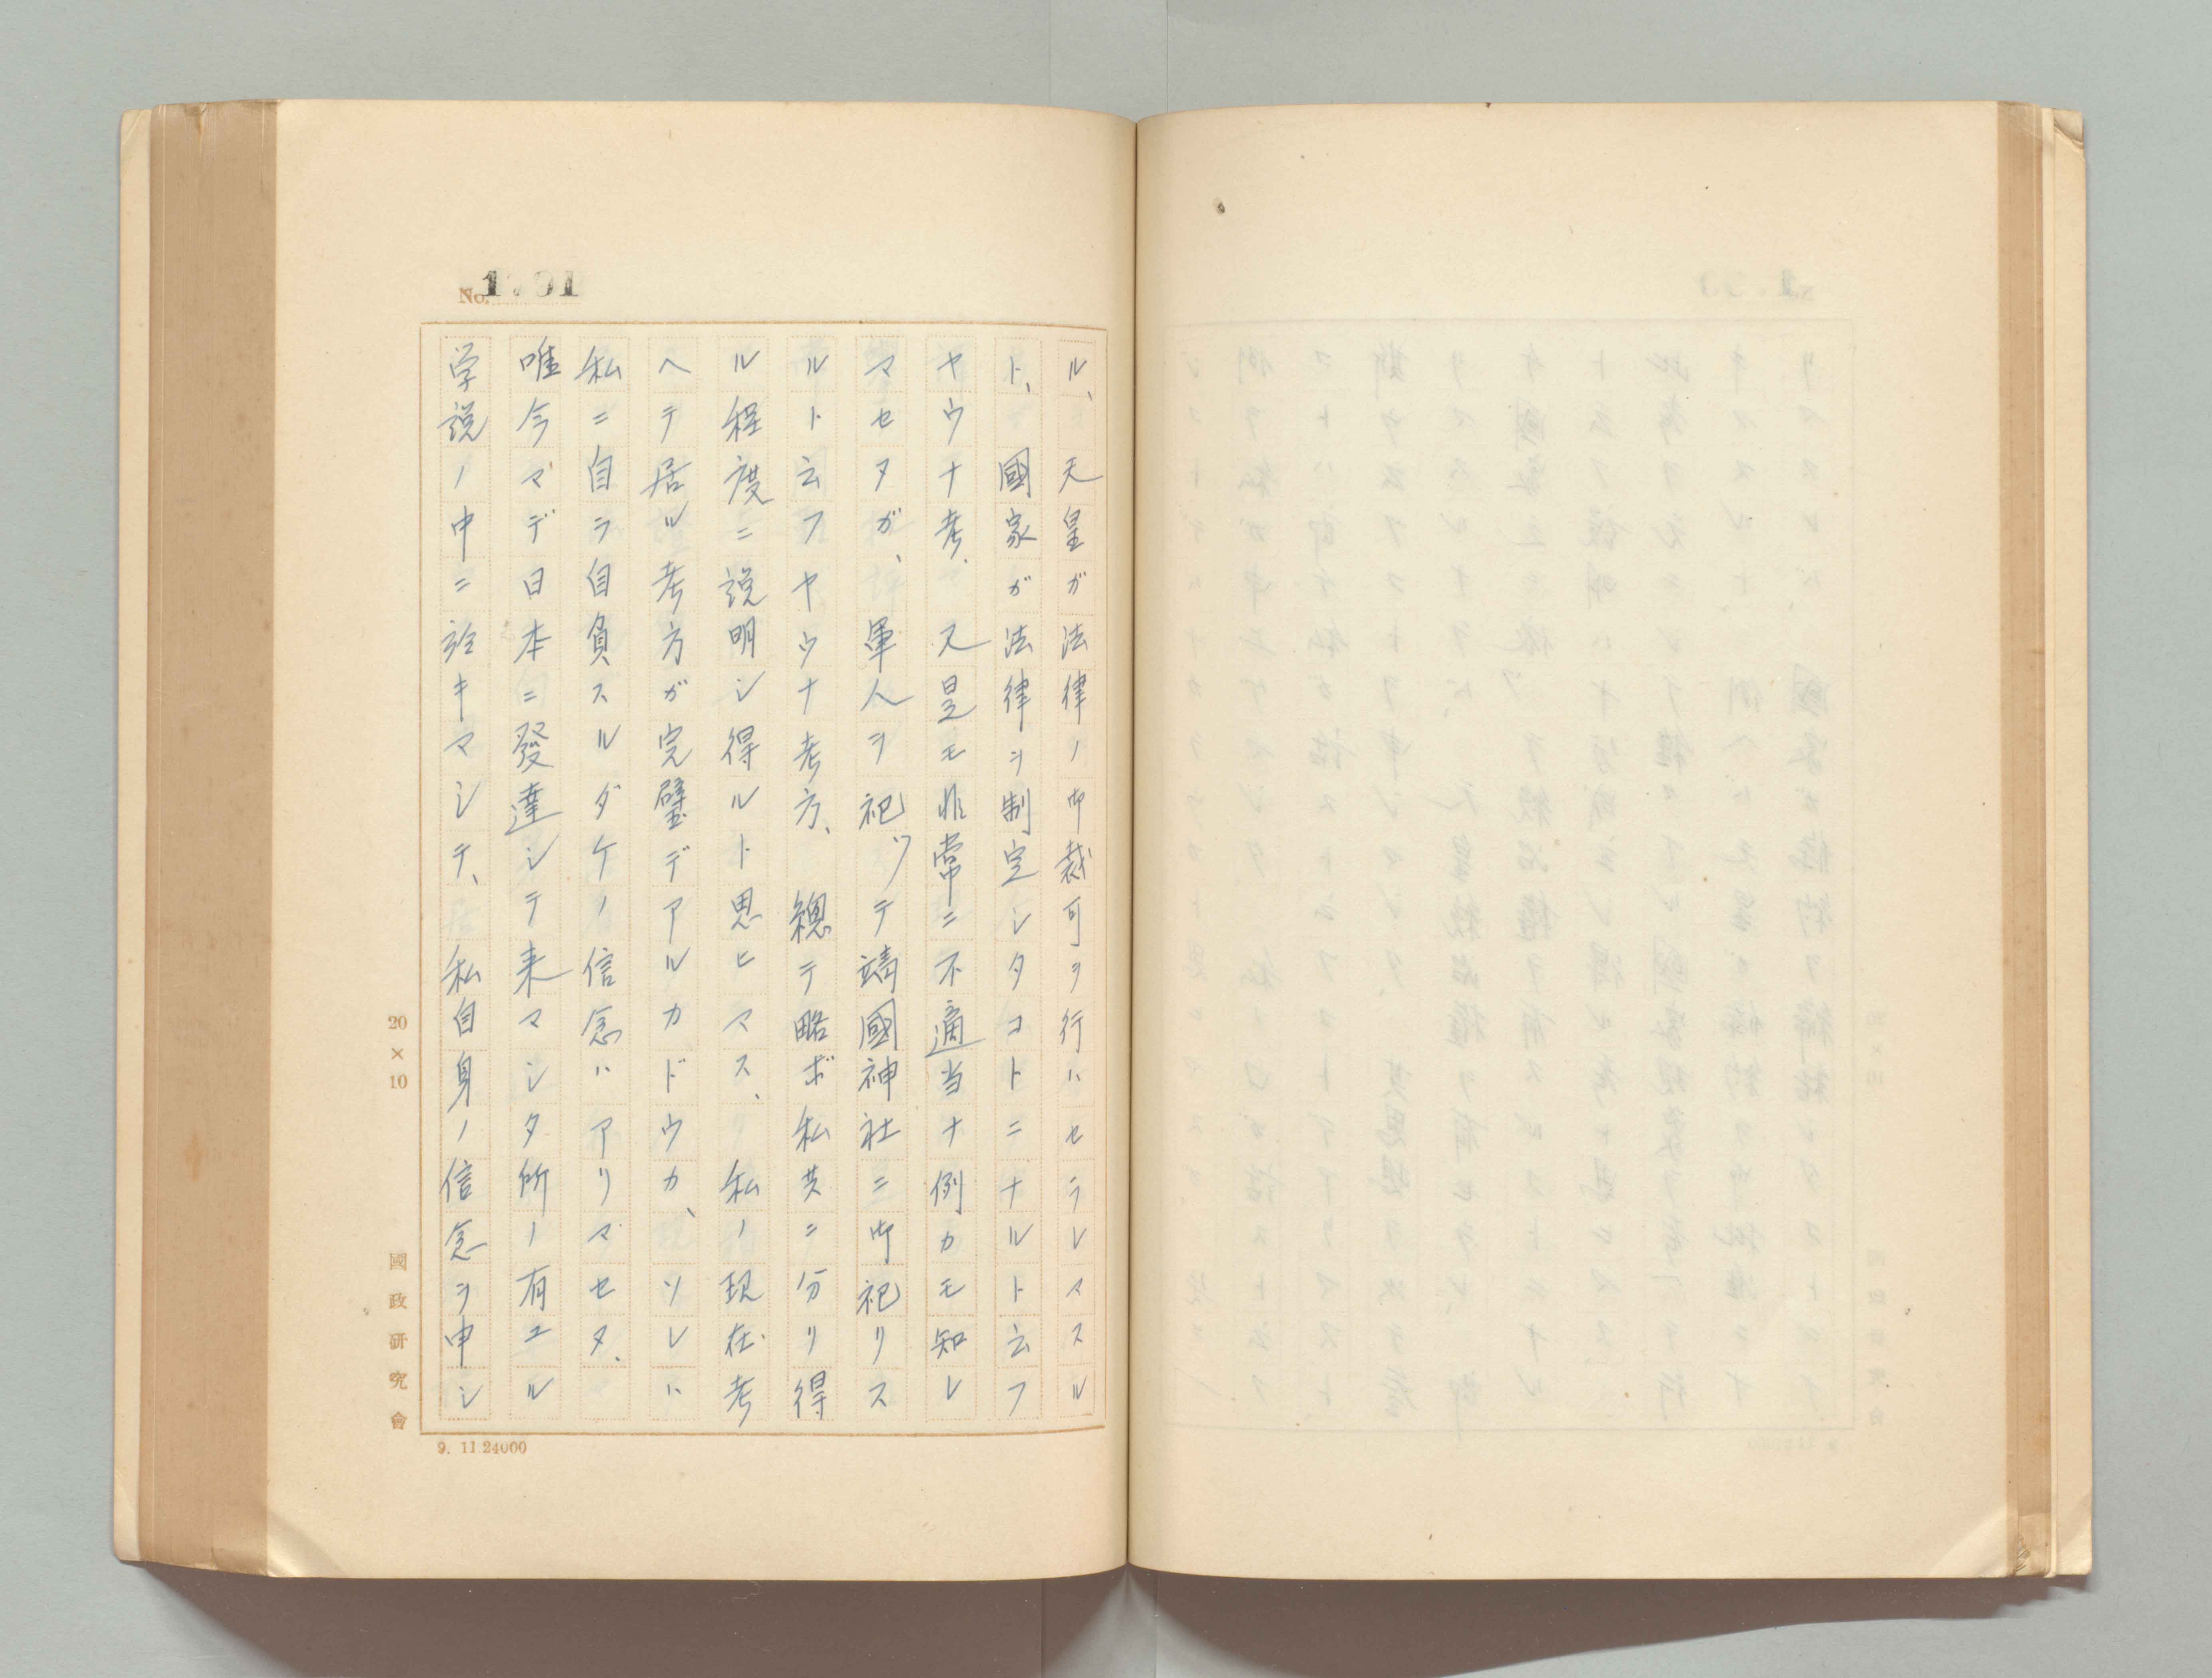 No.
ル、天皇ガ法律ノ御裁可ヲ行ハセラレマスル
ト、國家ガ法律ヲ制定シタコトニナルト云フ
ヤウナ考、又是モ非常ニ不適当ナ例カモ知レ
マセヌガ、軍人ヲ祀ツテ靖國神社ニ御祀リス
ルト云フヤウナ考方、總テ略ボ私共ニ分リ得
ル程度ニ説明シ得ルト思ヒマス、私ノ現在考
ヘテ居ル考方ガ完璧デアルカドウカ、ソレハ
私ニ自ラ自負スルダケノ信念ハアリマセヌ、
唯今マデ日本ニ發達シテ来マシタ所ノ有ユル
学説ノ中ニ於キマシテ、私自身ノ信念ヲ申シ
20×10
國政研究會
9. 11.24000